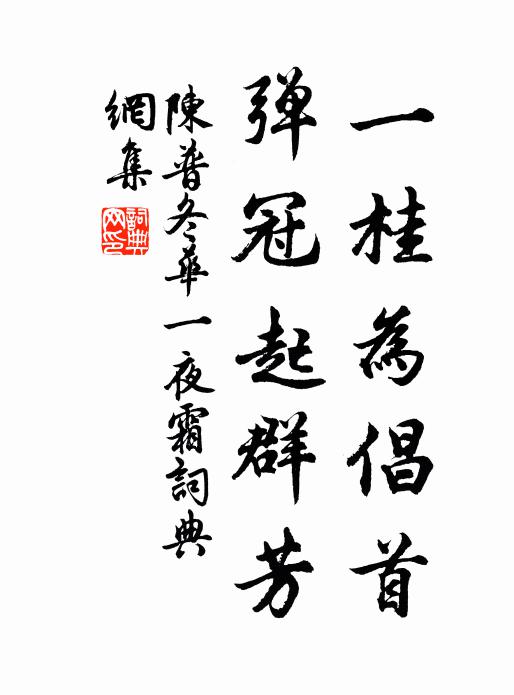 一桂為倡首
弹冠起群芳
陳普冬華一夜霜詞典
網集
詞典网印